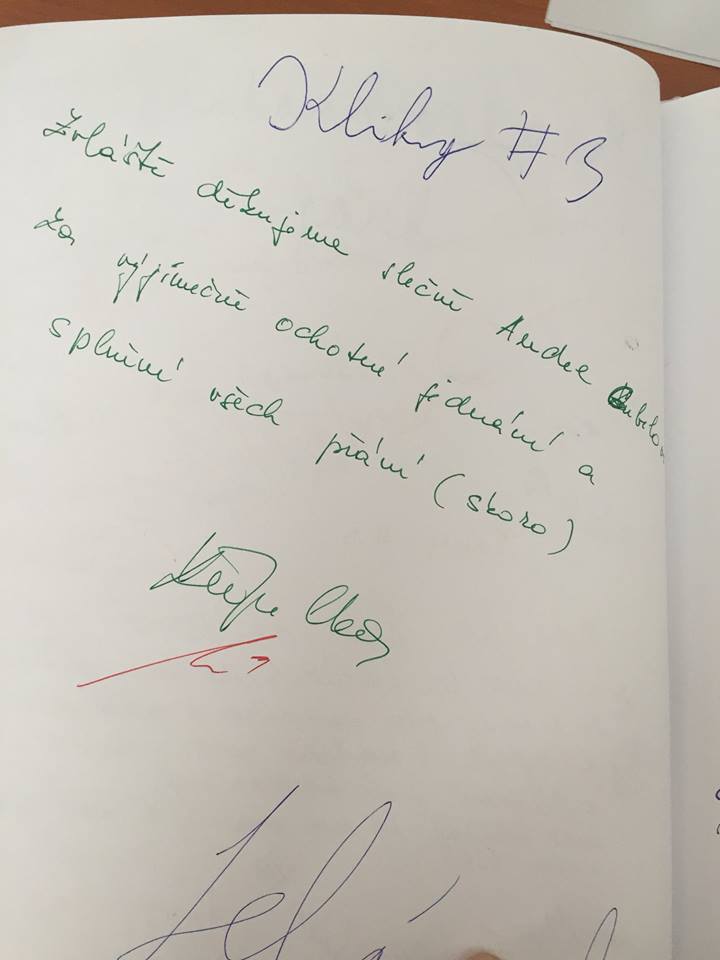 Kliky #3
Zvláště děkujeme slečně Andree
za výjimečně ochotné jednání a
splnění všech přání (skoro)